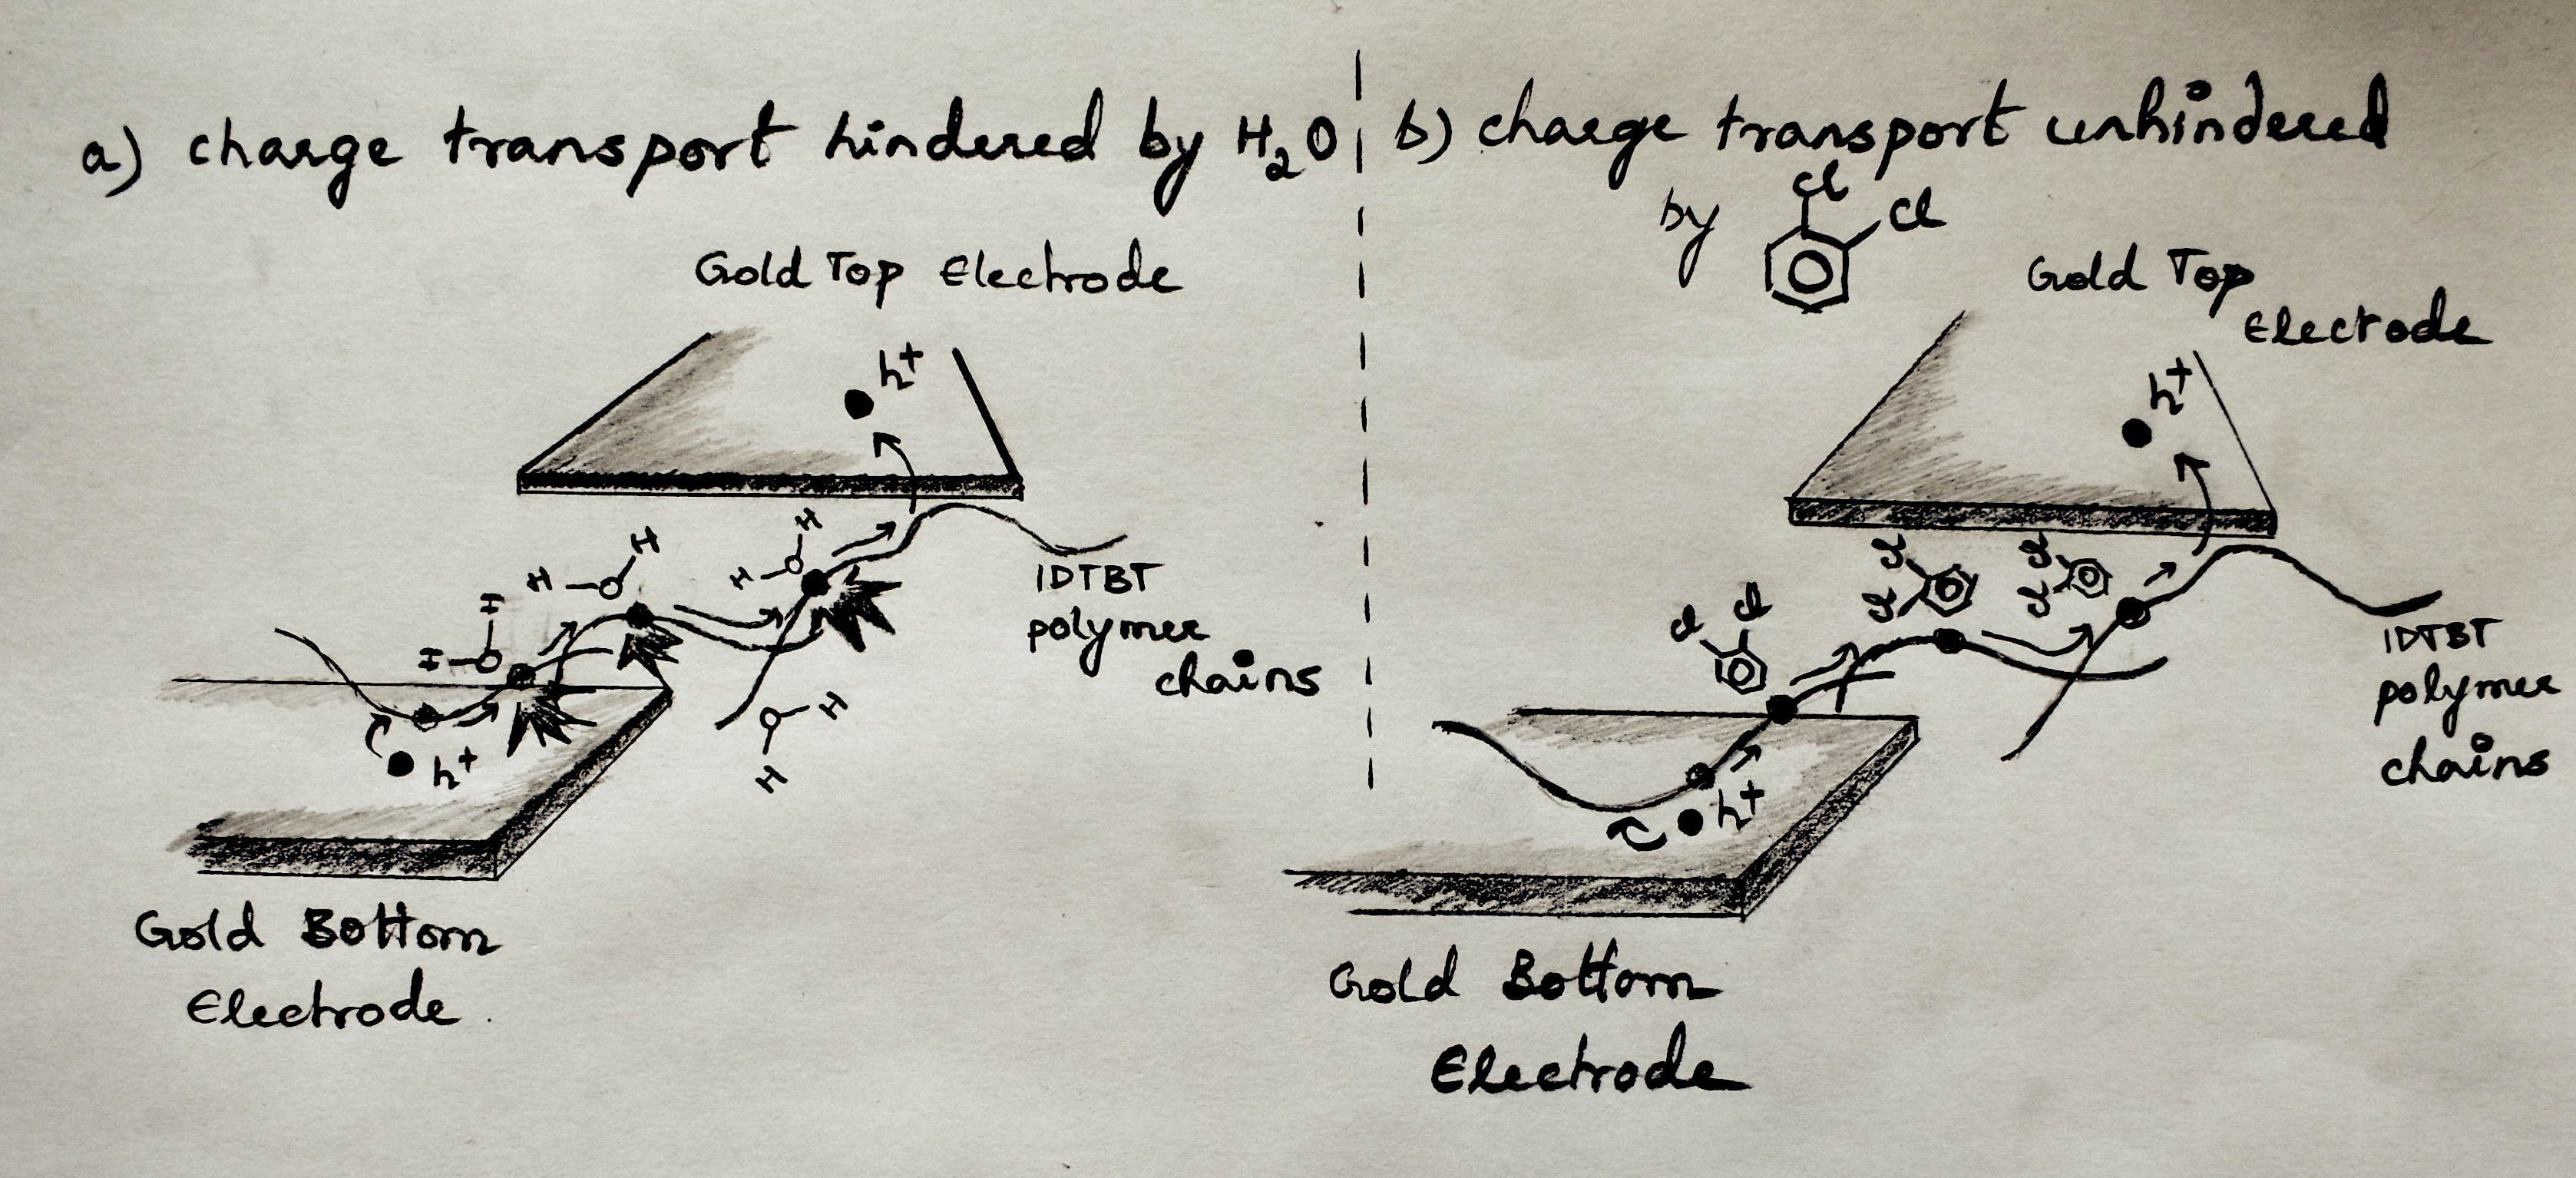 a) charge transport hindered by H₂O
Gold Top Electrode
h⁺
H
H
H
H
H
H
IDTBT
polymer
chains
H
H
h⁺
Gold Bottom
Electrode
b) charge transport unhindered
by
Cl
Cl
Gold Top
Electrode
h⁺
Cl
Cl
Cl
Cl
Cl
Cl
IDTBT
polymer
chains
h⁺
Gold Bottom
Electrode